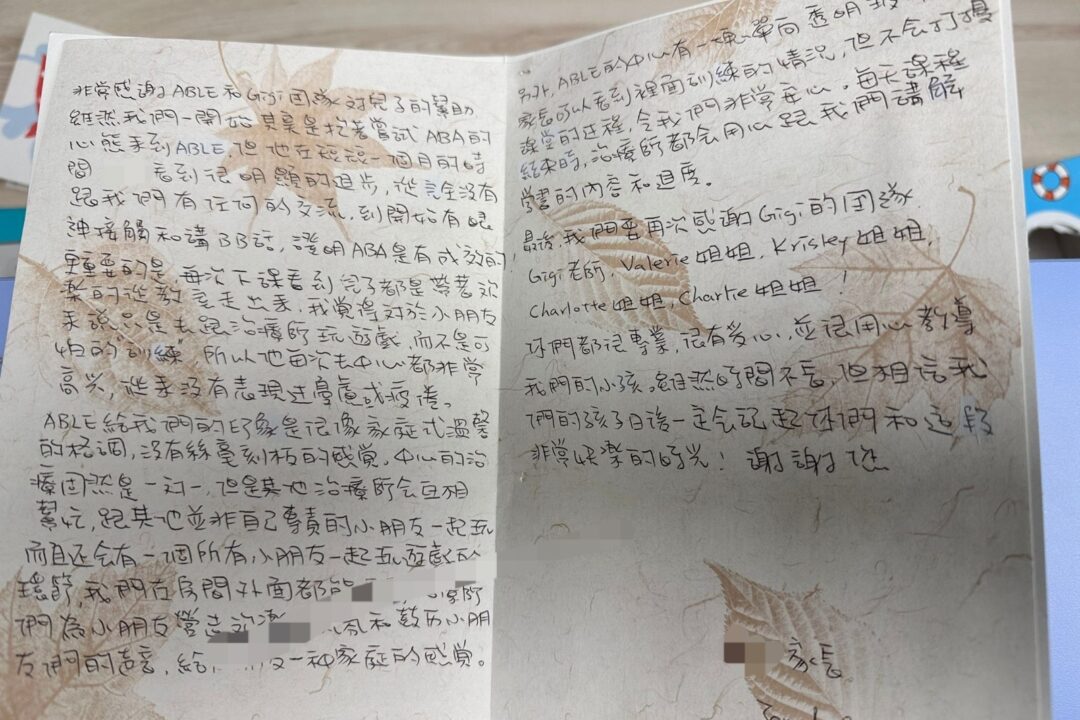 非常感謝ABLE和Gigi團隊對兒子的幫助
雖然我們一開始其實是抱着嘗試ABA的
心態來到ABLE,但他在短短一個月的時
間 看到很明顯的進步,從完全沒有
跟我們有任何的交流,到開始有眼
神接觸和講BB話,證明ABA是有成效的,
更重要的是,每次下課看到兒子都是帶着歡
樂的從教室走出來,我覺得對於小朋友
來說只是去跟治療師玩遊戲,而不是可
怕的"訓練"所以他每次去中心都非常
高兴,從來沒有表現过憂慮或疲倦。
ABLE給我們的印象是很像家庭式溫馨
的格調,沒有絲毫刻板的感覚,中心的治
療固然是一对一,但是其他治療師会互相
幫忙,跟其他並非自己專責的小朋友一起玩
而且还会有一個所有小朋友一起玩遊戲的
環節,我們在房間外面都能
們為小朋友營造 和鼓历小朋
友們的声音,給 一种家庭的感覚。
另外,ABLE的中心有一塊單向透明玻
家長可以看到裡面訓練的情況,但不会打擾
課堂的进程,令我們非常安心。每天課程
結束時,治療師都会用心跟我們講解
學習的內容和進度。
最後,我們要再次感謝Gigi的团隊
Gigi老師,Valerie姐姐,Krisley姐姐,
Charlotte姐姐,Charlie姐姐!
你們都很專業,很有爱心,並很用心教導
我們的小孩。雖然時間不長,但相信我
們的孩子日後一定会記起你們和这段
非常快樂的時光!謝謝您
家長